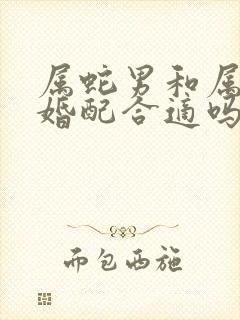 属蛇男和属
婚配合适吗
而包西施